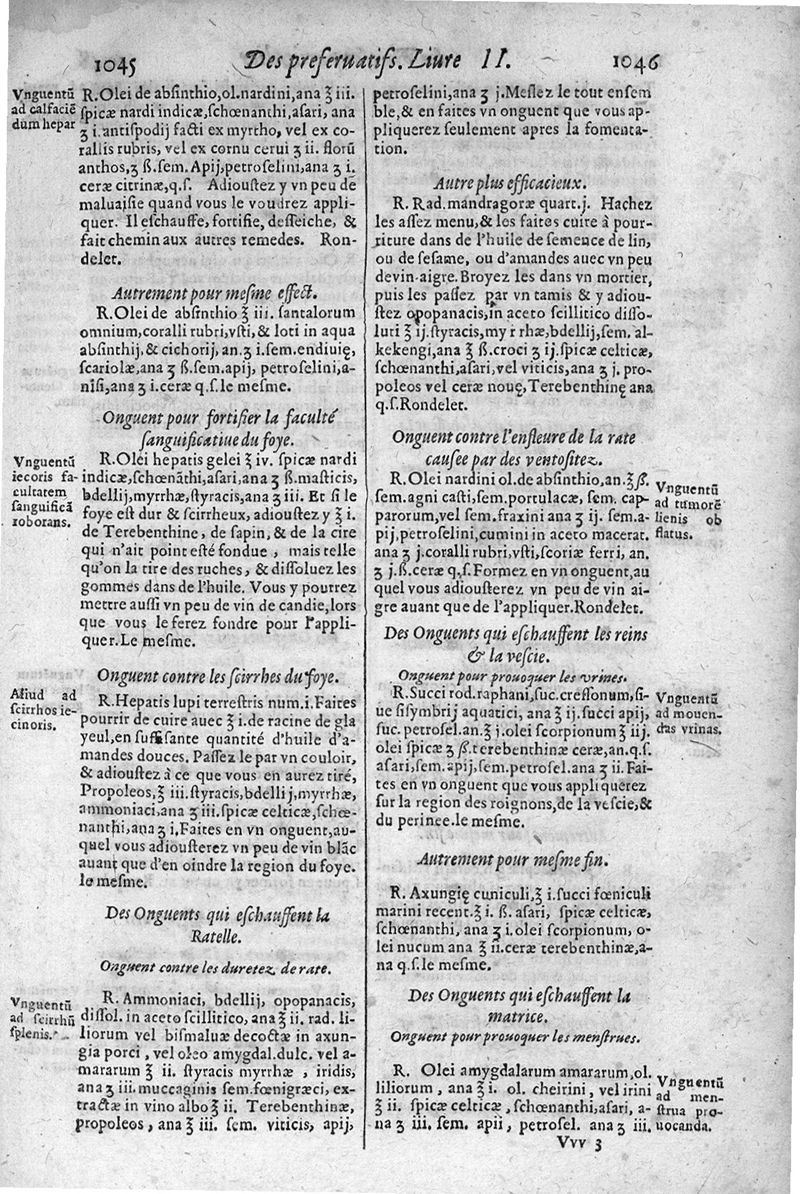 1045
Des preſeruatifs. Liure II.
1046
Vnguentū
ad calfaciē
dum hepar
R. Olei de abſinthio, ol. nardini, ana ℥ iii.
ſpicæ nardi indicæ, ſchœnanthi, aſari, ana
ʒ i. antiſpodij facti ex myrtho, vel ex co-
rallis rubris, vel ex cornu cerui ʒ ii. florū
anthos, ʒ ß. ſem. Apij, petroſelini, ana ʒ i.
ceræ citrinæ, q.ſ. Adiouſtez y vn peu de
maluaiſie quand vous le voudrez appli-
quer. Il eſchauffe, fortifie, deſſeiche, &
fait chemin aux autres remedes. Ron-
delet.
Autrement pour meſme effect.
R. Olei de abſinthio ℥ iii. ſantalorum
omnium, coralli rubri, vſti, & loti in aqua
abſinthij, & cichorij, an. ʒ i. ſem. endiuię,
ſcariolæ, ana ʒ ß. ſem. apij, petroſelini, a-
niſi, ana ʒ i. ceræ q.ſ. le meſme.
Onguent pour fortifier la faculté
ſanguificatiue du foye.
Vnguentū
iecoris fa-
cultatem
ſanguificā
roborans.
R. Olei hepatis gelei ℥ iv. ſpicæ nardi
indicæ, ſchœnāthi, aſari, ana ʒ ß. maſticis,
bdellij, myrrhæ, ſtyracis, ana ʒ iii. Et ſi le
foye eſt dur & ſcirrheux, adiouſtez y ℥ i.
de Terebenthine, de ſapin, & de la cire
qui n'ait point eſté fondue, mais telle
qu'on la tire des ruches, & diſſoluez les
gommes dans de l'huile. Vous y pourrez
mettre auſſi vn peu de vin de candie, lors
que vous le ferez fondre pour l'appli-
quer. Le meſme.
Onguent contre les ſcirrhes du foye.
Aliud ad
ſcirrhos ie-
cinoris.
R. Hepatis lupi terreſtris num. i. Faites
pourrir de cuire auec ℥ i. de racine de gla
yeul, en ſuffiſante quantité d'huile d'a-
mandes douces. Paſſez le par vn couloir,
& adiouſtez à ce que vous en aurez tiré,
Propoleos, ℥ iii. ſtyracis, bdellij, myrrhæ,
ammoniaci, ana ʒ iii. ſpicæ celticæ, ſchœ-
nanthi, ana ʒ i, Faites en vn onguent, au-
quel vous adiouſterez vn peu de vin blāc
auant que d'en oindre la region du foye.
le meſme.
Des Onguents qui eſchauffent la
Ratelle.
Onguent contre les duretez de rate.
Vnguentū
ad ſcirrhū
ſplenis.
R. Ammoniaci, bdellij, opopanacis,
diſſol. in aceto ſcillitico, ana ℥ ii. rad. li-
liorum vel biſmaluæ decoctæ in axun-
gia porci, vel oleo amygdal. dulc. vel a-
mararum ℥ ii. ſtyracis myrrhæ, iridis,
ana ʒ iii. muccaginis ſem. fœnigræci, ex-
tractæ in vino albo ℥ ii. Terebenthinæ,
propoleos, ana ℥ iii. ſem. viticis, apij,
petroſelini, ana ʒ j. Meſlez le tout enſem
ble, & en faites vn onguent que vous ap-
pliquerez ſeulement apres la fomenta-
tion.
Autre plus efficacieux.
R. Rad. mandragoræ quart. j. Hachez
les aſſez menu, & les faites cuire à pour-
riture dans de l'huile de ſemence de lin,
ou de ſeſame, ou d'amandes auec vn peu
de vin-aigre. Broyez les dans vn mortier,
puis les paſſez par vn tamis & y adiou-
ſtez opopanacis, in aceto ſcillitico diſſo-
luti ℥ ij. ſtyracis, myrrhæ, bdellij, ſem. al-
kekengi, ana ℥ ß. croci ʒ ij. ſpicæ celticæ,
ſchœnanthi, aſari, vel viticis, ana ʒ j. pro-
poleos vel ceræ nouę, Terebenthinę ana
q.ſ. Rondelet.
Onguent contre l'enfleure de la rate
cauſee par des ventoſitez.
R. Olei nardini ol. de abſinthio, an. ℥ ß.
ſem. agni caſti, ſem. portulacæ, ſem. cap-
parorum, vel ſem. fraxini ana ʒ ij. ſem. a-
pij, petroſelini, cumini in aceto macerat.
ana ʒ j. coralli rubri, vſti, ſcoriæ ferri, an.
ʒ j. ß. ceræ q.ſ. Formez en vn onguent, au
quel vous adiouſterez vn peu de vin ai-
gre auant que de l'appliquer. Rondelet.
Vnguentū
ad tumorē
lienis ob
flatus.
Des Onguents qui eſchauffent les reins
& la veſcie.
Onguent pour prouoquer les vrines.
R. Succi rod. raphani, ſuc. creſſonum, ſi-
ue ſiſymbrij aquatici, ana ℥ ij. ſucci apij,
ſuc. petroſel. an. ℥ j. olei ſcorpionum ℥ iij.
olei ſpicæ ʒ ß. terebenthinæ ceræ, an. q.ſ.
aſari, ſem. apij, ſem. petroſel. ana ʒ ii. Fai-
tes en vn onguent que vous appliquerez
ſur la region des roignons, de la veſcie, &
du perinee. le meſme.
Vnguentū
ad mouen-
das vrinas.
Autrement pour meſme fin.
R. Axungię cuniculi, ℥ i. ſucci fœniculi
marini recent. ℥ i. ß. aſari, ſpicæ celticæ,
ſchœnanthi, ana ʒ i. olei ſcorpionum, o-
lei nucum ana ℥ ii. ceræ terebenthinæ, a-
na q.ſ. le meſme.
Des Onguents qui eſchauffent la
matrice.
Onguent pour prouoquer les menſtrues.
R. Olei amygdalarum amararum, ol.
liliorum, ana ℥ i. ol. cheirini, vel irini
℥ ii. ſpicæ celticæ, ſchœnanthi, aſari, a-
na ʒ iii. ſem. apii, petroſel. ana ʒ iii.
Vnguentū
ad men-
ſtrua pro-
uocanda.
Vvv 3